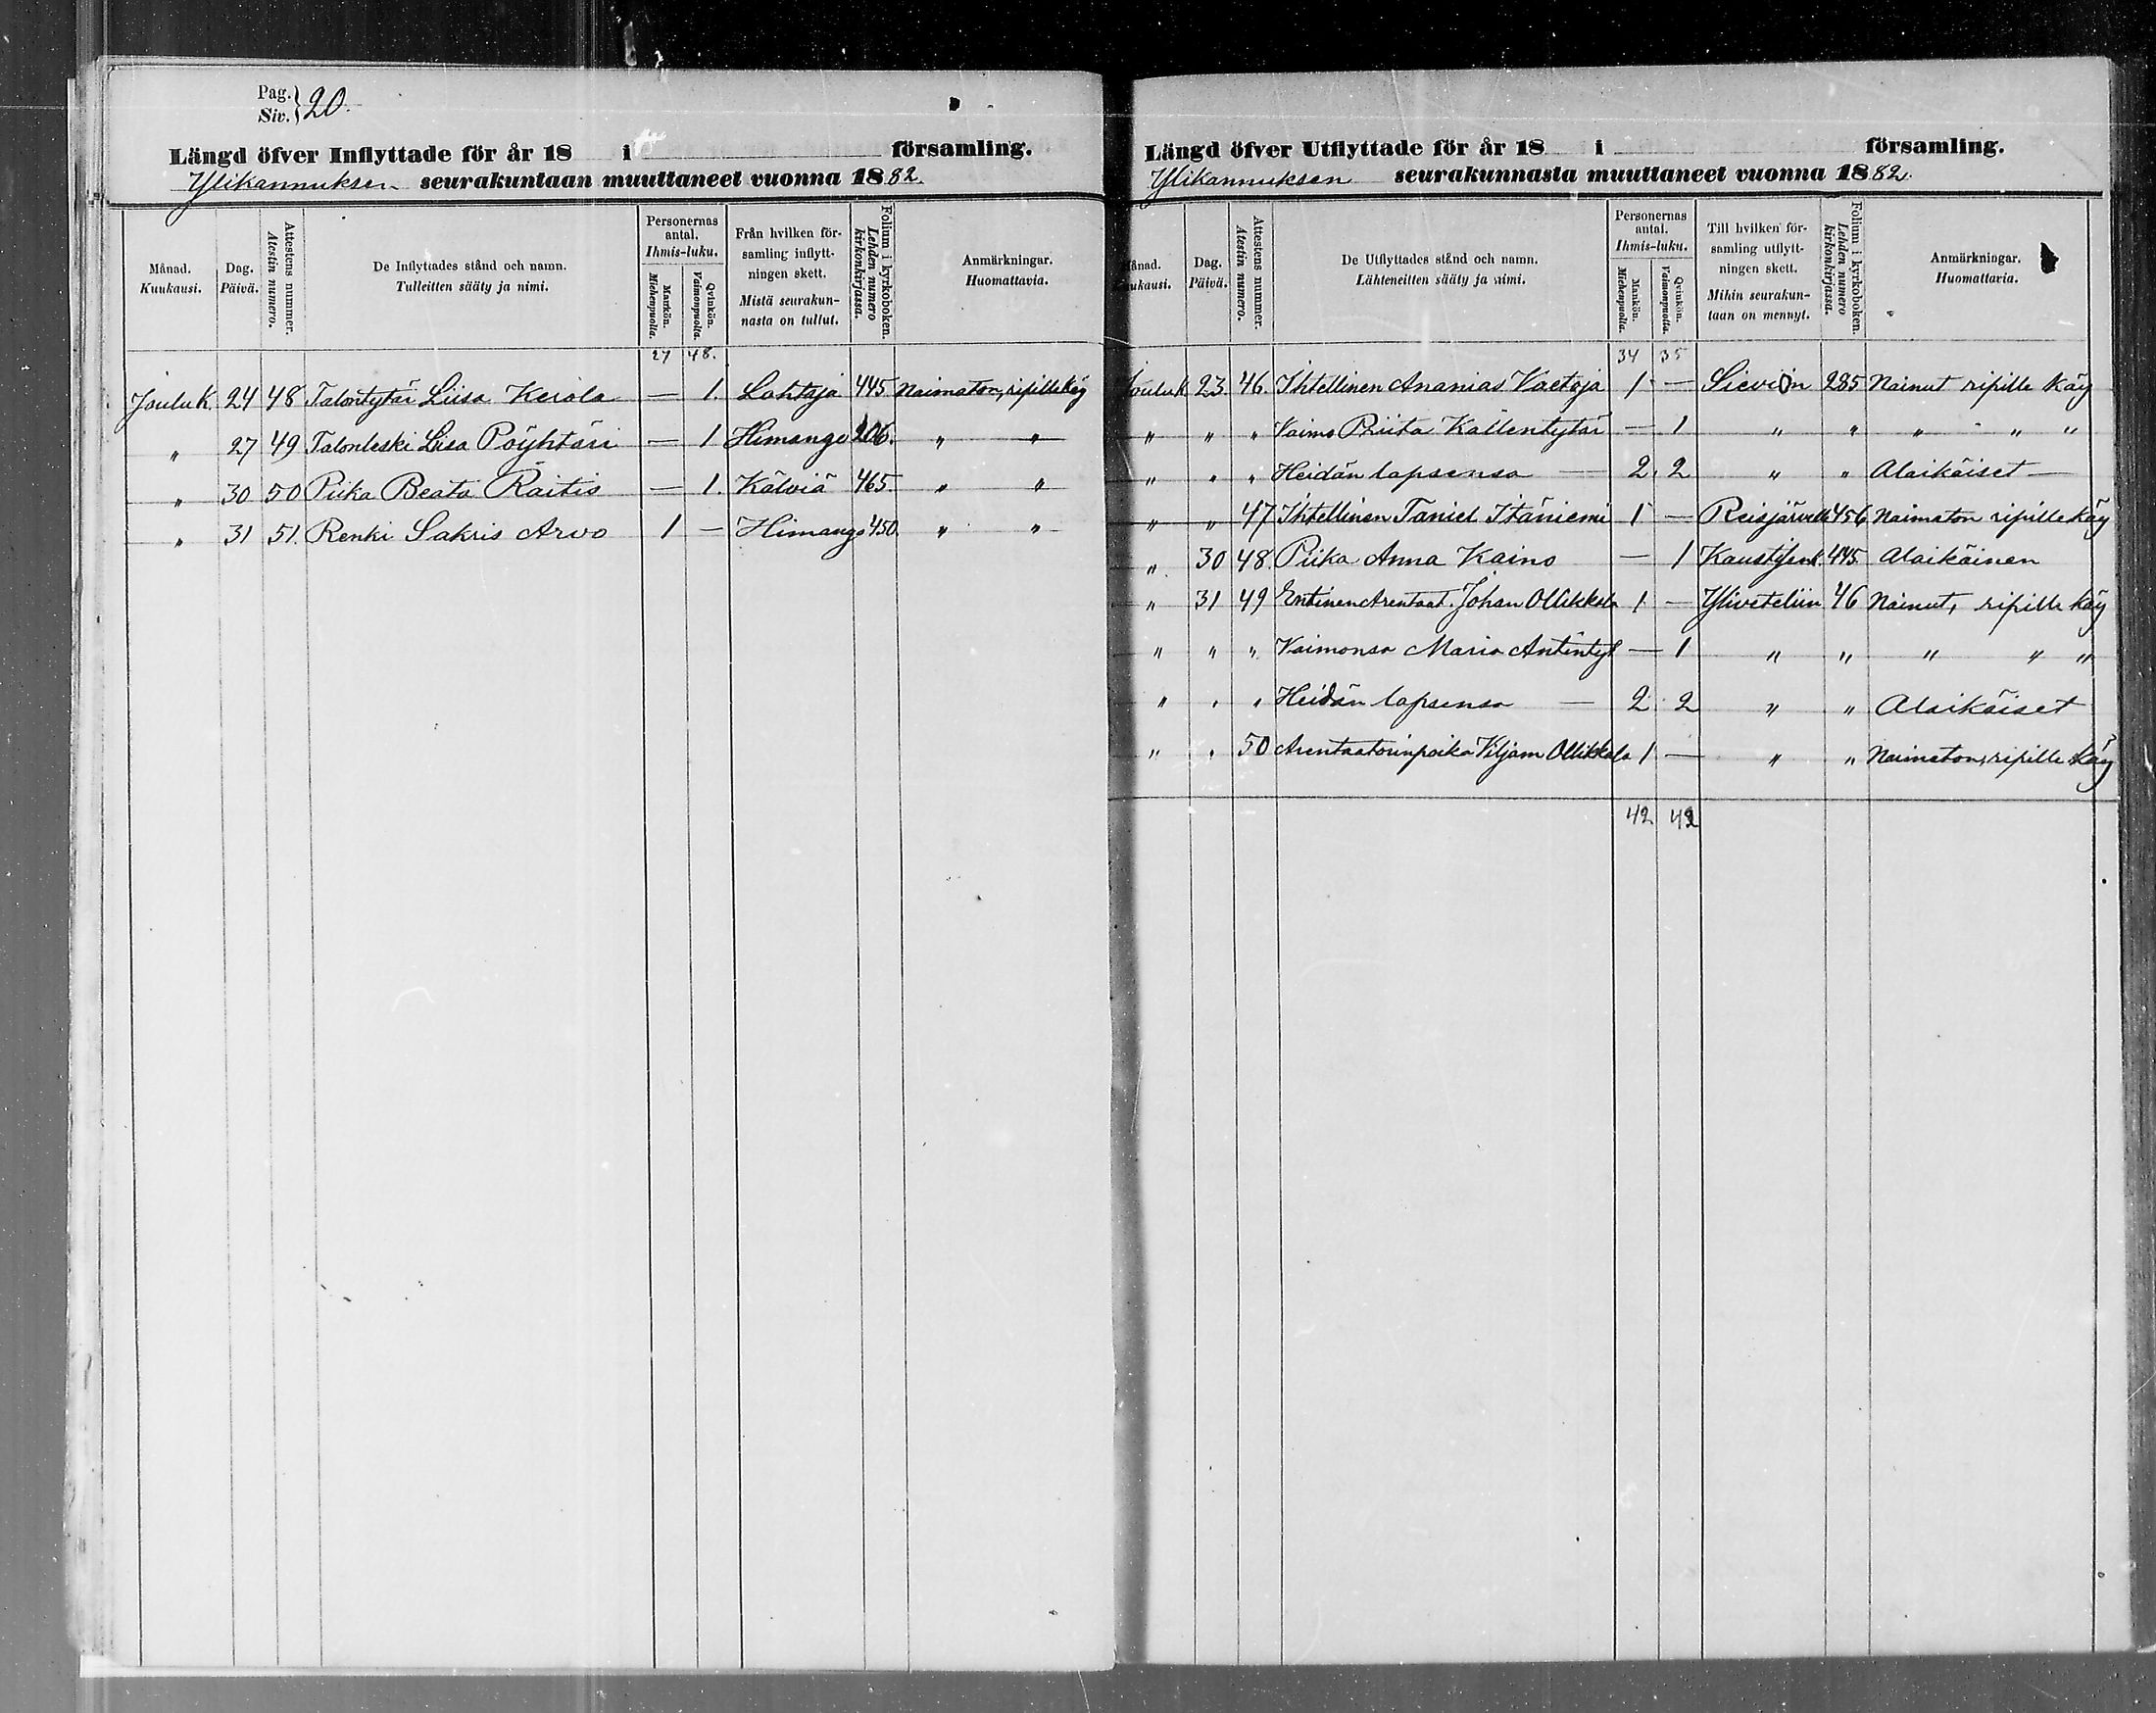 Pag. Siv. } 20.
Längd öfver Inflyttade för år 18 i församling.
Ylikannuksen seurakuntaan muuttaneet vuonna 1882.
Månad. Kuukausi. | Dag. Päivä. | Attestens nummer. Atestin numero. | De Inflyttades stånd och namn. Tulleitten sääty ja nimi. | Personernas antal. Ihmis-luku. Mankön. Miehenpuolia. Qvinkön. Vaimonpuolia. | Från hvilken församling inflyttningen skett. Mistä seurakunnasta on tullut. | Folium i kyrkoboken. Lehden numero kirkonkirjassa. | Anmärkningar. Huomattavia.
27 48.
Jouluk. 24 48 Talontytär Liisa Kerola — 1. Lohtaja 445 Naimaton, ripillä käy
„ 27 49 Talonleski Lisa Pöyhtäri — 1 Himango 206. „ „
„ 30 50 Piika Beata Raitis — 1. Kälviä 465. „ „
„ 31 51. Renki Sakris Arvo 1 — Himango 450. „ „
Längd öfver Utflyttade för år 18 i församling.
Ylikannuksen seurakunnasta muuttaneet vuonna 1882.
Månad. Kuukausi. | Dag. Päivä. | Attestens nummer. Atestin numero. | De Utflyttades stånd och namn. Lähteneitten sääty ja nimi. | Personernas antal. Ihmis-luku. Mankön. Miehenpuolia. Qvinkön. Vaimonpuolia. | Till hvilken församling utflyttningen skett. Mihin seurakuntaan on mennyt. | Folium i kyrkoboken. Lehden numero kirkonkirjassa. | Anmärkningar. Huomattavia.
34 35
Jouluk. 23. 46. Itstellinen Ananias Vaetoja 1 — Sieviin 285 Nainut ripille käy
„ „ „ Vaimo Priita Kallentytär — 1 „ „ „ „ „
„ „ „ Heidän lapsensa — 2. 2 „ „ Alaikäiset —
„ „ 47 Itstellinen Taniel Itäniemi 1 — Reisjärvelle 456 Naimaton ripille käy
„ 30 48. Piika Anna Kaino — 1 445. Alaikäinen
„ 31 49 Entinen Arentaat. Johan Ollikkala 1 — Yliveteliin 46 Nainut, ripille käy
„ „ „ Vaimonsa Maria Antintyt — 1 „ „ „ „ „
„ „ „ Heidän lapsensa — 2 2 „ „ Alaikäiset
„ „ 50 Arentaatorinpoika Viljam Ollikkala 1 — „ „ Naimaton, ripille käy
42 42